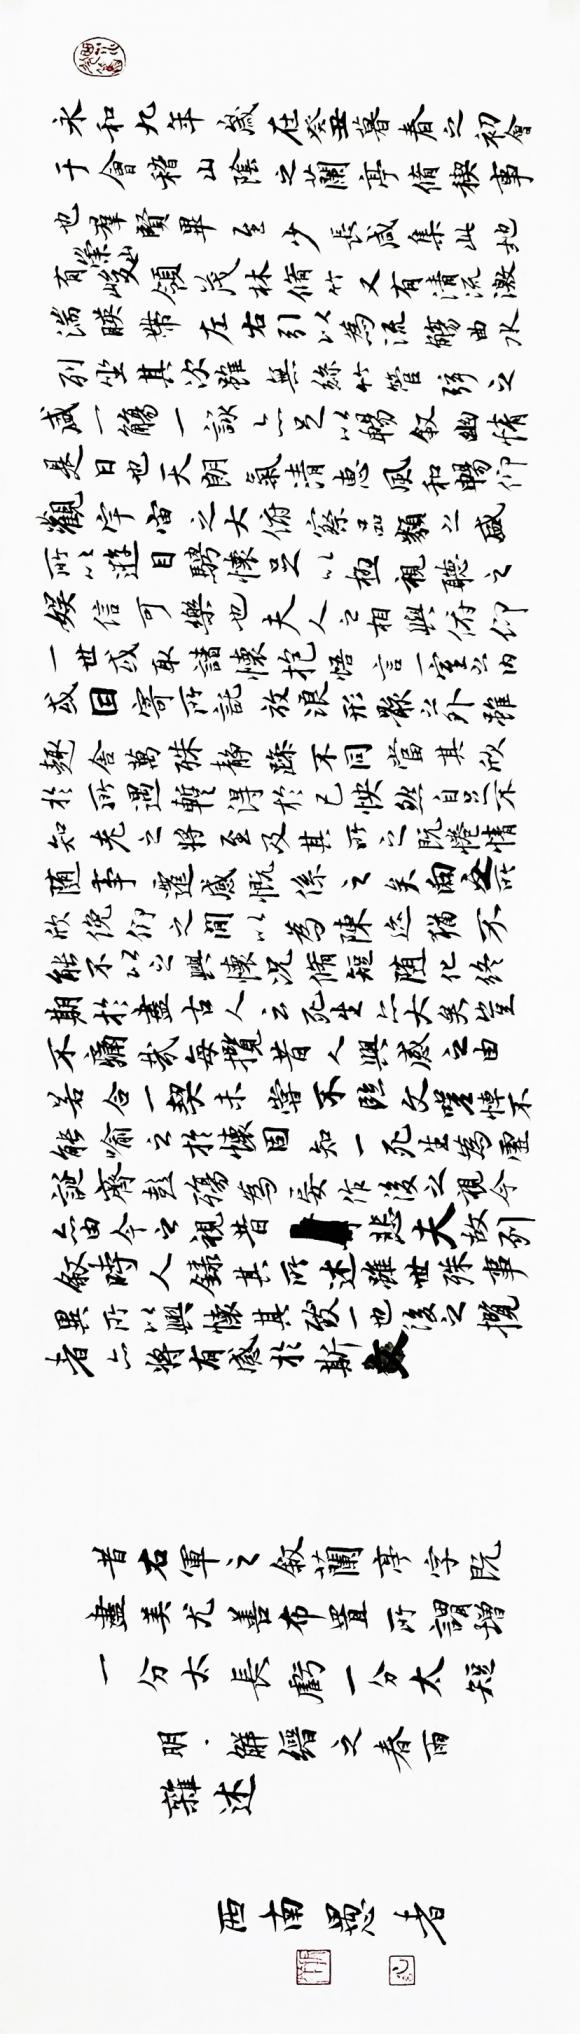 永和九年歲在癸丑暮春之初會
于會稽山陰之蘭亭脩稧事
也羣賢畢至少長咸集此地
有崇山峻領茂林脩竹又有清流激
湍暎帶左右引以為流觴曲水
列坐其次雖無絲竹管弦之
盛一觴一詠亦足以暢叙幽情
是日也天朗氣清恵風和暢仰
觀宇宙之大俯察品類之盛
所以遊目騁懷足以極視聽之
娛信可樂也夫人之相與俯仰
一世或取諸懷抱悟言一室之內
或因寄所託放浪形骸之外雖
趣舍萬殊静躁不同當其欣
於所遇蹔得於己怏然自足不
知老之將至及其所之既惓情
随事遷感慨係之矣向之所
欣俛仰之閒以為陳迹猶不
能不以之興懷況脩短随化終
期於盡古人云死生亦大矣豈
不痛哉每攬昔人興感之由
若合一契未嘗不臨文嗟悼不
能喻之於懷固知一死生為虛
誕齊彭殤為妄作後之視今
亦由今之視昔悲夫故列
叙時人錄其所述雖世殊事
異所以興懷其致一也後之攬
者亦將有感於斯文
昔右軍之叙蘭亭字既
盡美尤善布置所謂增
一分太長虧一分太短
明·解縉之春雨
雜述
西南愚者